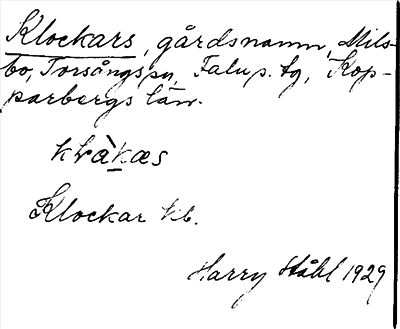 Klockars, gårdsnamn, Mils-
bo, Torsångs sn, Falu p. tg, Kop-
parbergs län.
klàkas
Klockar kb.
Harry Ståhl 1929